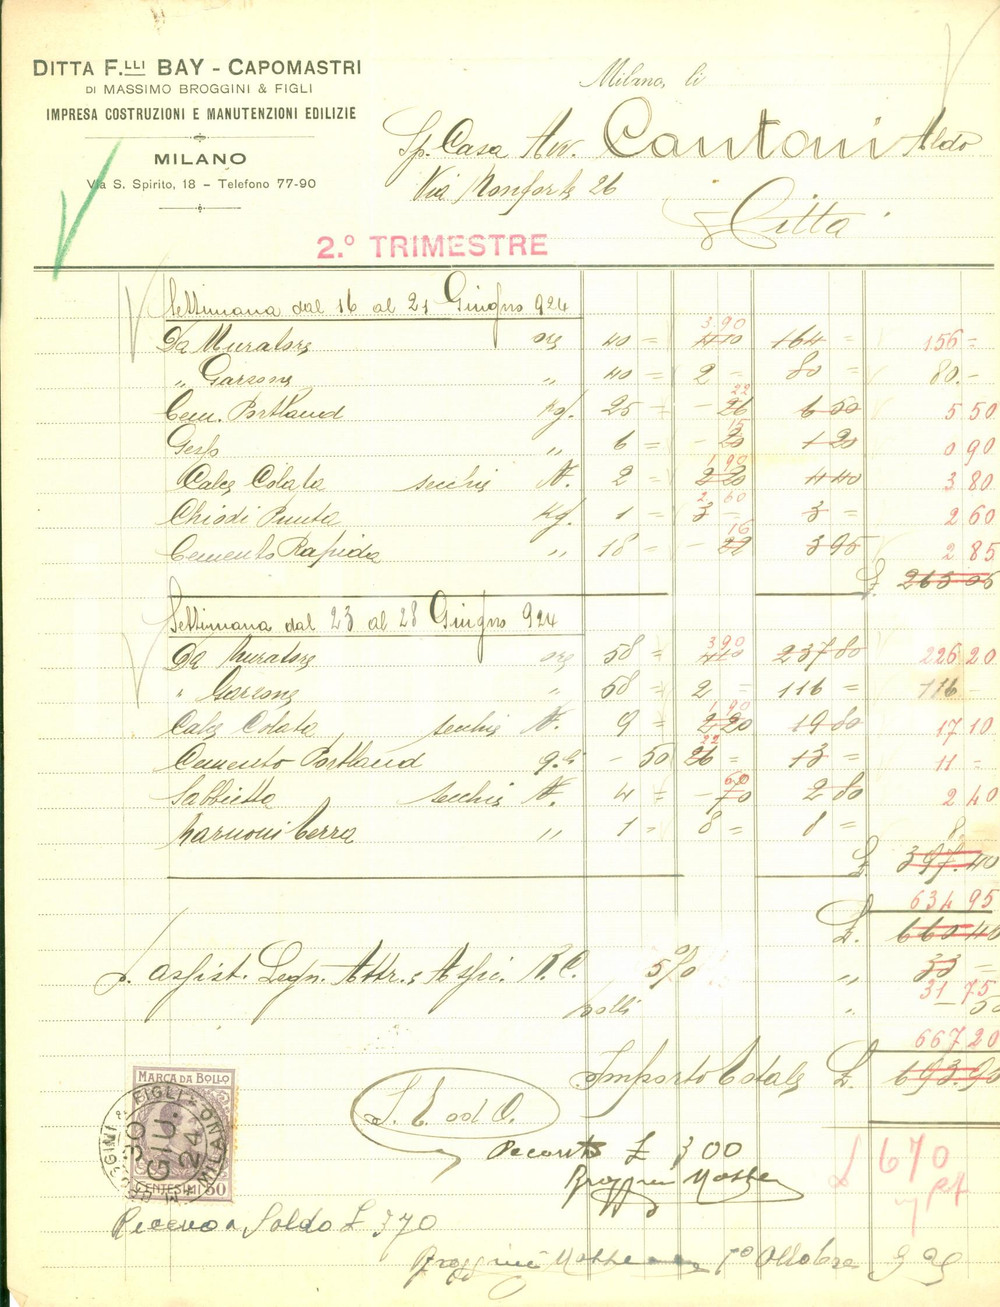 DITTA F.LLI BAY - CAPOMASTRI
DI MASSIMO BROGGINI & FIGLI
IMPRESA COSTRUZIONI E MANUTENZIONI EDILIZIE
MILANO
Via S. Spirito, 18 - Telefono 77-90
Milano, li
Sp. Casa Avv. Cantoni Aldo
Via Monforte 26
Città
2.º TRIMESTRE
Settimana dal 16 al 21 Giugno 924
3.90
Da Muratore ore 40 = 4 10 164 = 156 =
" Garzone " 40 = 2 = 80 = 80.-
22
Cem. Portland Kg. 25 = - 26 6 50 5 50
15
Gesso " 6 = - 20 1 20 0 90
1 90
Calce Colata secchie N. 2 = 2 20 4 40 3 80
2 60
Chiodi Punta Kg. 1 = 3 = 3 = 2 60
16
Cemento Rapida " 18 = - 22 3 95 2 85
£. 263 05
Settimana dal 23 al 28 Giugno 924
3 90
Da Muratore ore 58 = 4 10 237 80 226 20
" Garzone " 58 = 2 = 116 = 116
1 90
Calce Colata secchie N. 9 = 2 20 19 80 17 10
22
Cemento Portland q.li - 50 26 = 13 = 11 =
60
Sabbietta secchie N. 4 = - 70 2 80 2 40
Marmoni terra " 1 = 8 = 8 = 8.
£. 397.40
634 95
£. 660 40
Assist. Legn. Attr. e Assic. 5% " 33 =
31 75
Bolli " - 50
667 20
Importo Totale £. 693.90
S. E. od O.
£ 670
MARCA DA BOLLO
CENTESIMI 50
BROGGINI & FIGLI - MILANO
30 GIU. 24
Ricevuto £ 300
Broggini Massimo
Ricevo a Saldo £ 370
Broggini Massimo 1º Ottobre 925